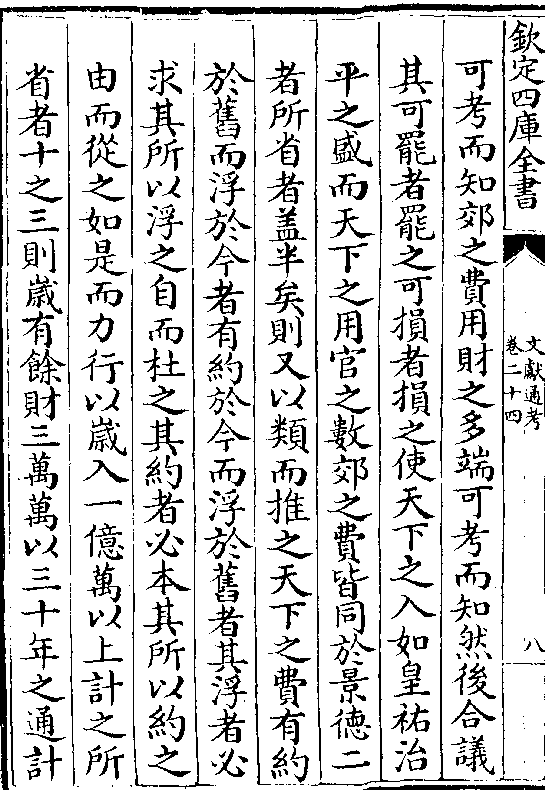 欽定四庫全書
文獻通考
卷二十四
八
可考而知郊之費用財之多端可考而知然後合議
其可罷者罷之可損者損之使天下之入如皇祐治
平之盛而天下之用官之數郊之費皆同於景德二
者所省者盖半矣則又以類而推之天下之費有約
於舊而浮於今者有約於今而浮於舊者其浮者必
求其所以浮之自而杜之其約者必本其所以約之
由而從之如是而力行以歳入一億萬以上計之所
省者十之三則歳有餘財三萬萬以三十年之通計